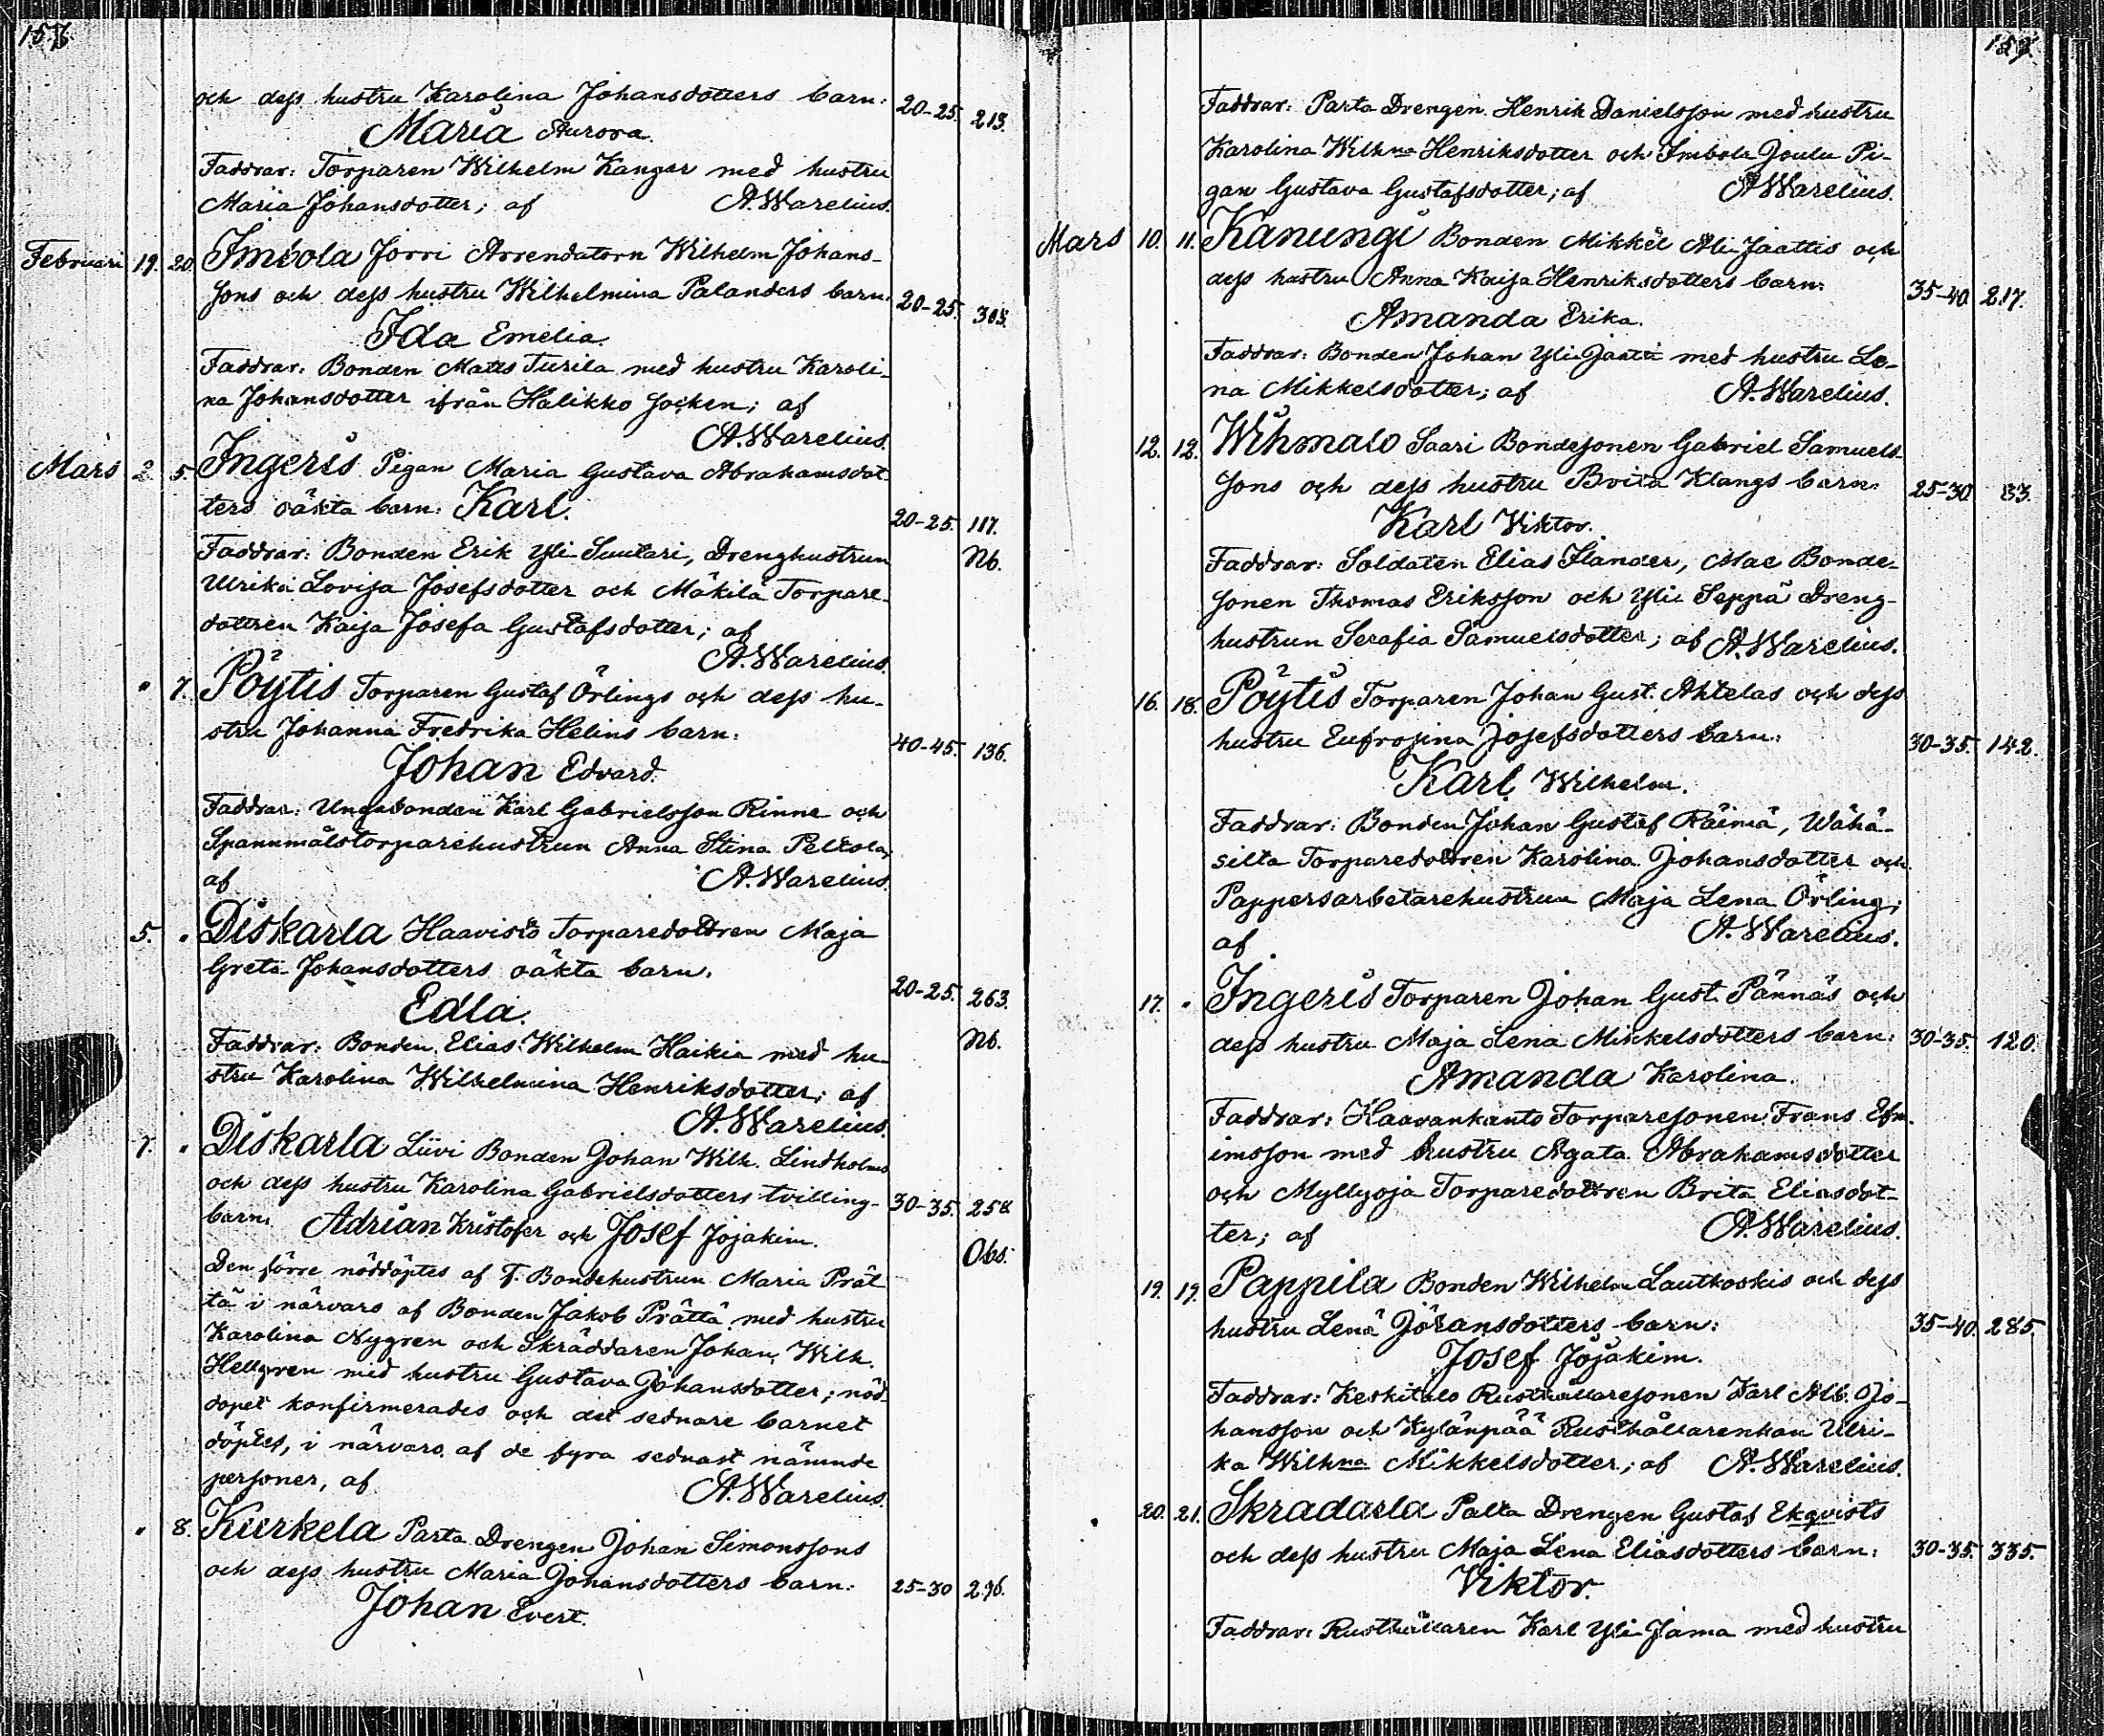 156.
och dess hustru Karolina Johansdotters barn: 20-25. 213.
Maria Aurora.
Faddrar: Torparen Wilhelm Kangar med hustru
Maria Johansdotter; af A. Warelius.
Februari 19. 20. Imbola Jorri Arrendatorn Wilhelm Johans-
sons och dess hustru Wilhelmina Palanders barn: 20-25. 303.
Ida Emelia.
Faddrar: Bonden Matts Turila med hustru Karoli-
na Johansdotter ifrån Halikko socken; af
A. Warelius.
Mars 2. 5. Ingeris Pigan Maria Gustava Abrahamsdot-
ters oäkta barn: Karl. 20-25. 117.
Faddrar: Bonden Erik Yli-Suutari, Drenghustrun Nb.
Ulrika Lovisa Josefsdotter och Mäkilä Torpare-
dottren Kaisa Josefa Gustafsdotter; af
A. Warelius.
" 7. Pöytis Torparen Gustaf Örlings och dess hu-
stru Johanna Fredrika Helins barn: 40-45. 136.
Johan Edvard.
Faddrar: Ungabonden Karl Gabrielsson Rinne och
Spannmålstorparehustrun Anna Stina Peltola;
af A. Warelius.
5. " Diskarla Haavisto Torparedottren Maja
Greta Johansdotters oäkta barn. 20-25. 263.
Edla.
Faddrar: Bonden Elias Wilhelm Haikia med hu- Nb.
stru Karolina Wilhelmina Henriksdotter; af
A. Warelius.
7. " Diskarla Liivi Bonden Johan Wilh. Lindholms
och dess hustru Karolina Gabrielsdotters tvilling- 30-35. 258
barn: Adrian Kristofer och Josef Jojakim. Obs.
Den förre nöddöptes af F. Bondehustrun Maria Prät-
tä i närvaro af Bonden Jakob Prättä med hustru
Karolina Nygren och Skräddaren Johan Wilh.
Hellgren med hustru Gustava Johansdotter; nöd-
dopet konfirmerades och det sednare barnet
döptes, i närvaro af de fyra sednast nämnde
personer, af A. Warelius.
" 8. Kurkela Parta Drengen Johan Simonssons
och dess hustru Maria Johansdotters barn: 25-30 296.
Johan Evert.
157.
Faddrar: Parta Drengen Henrik Danielsson med hustru
Karolina Wilhna Henriksdotter och Imbola Joulu Pi-
gan Gustava Gustafsdotter; af A. Warelius.
Mars 10. 11. Kanungi Bonden Mikkel Ali-Jaattis och
dess hustru Anna Kaisa Henriksdotters barn: 35-40 217.
Amanda Erika.
Faddrar: Bonden Johan Yli-Jaatti med hustru Le-
na Mikkelsdotter; af A. Warelius.
12. 12. Wihmalo Saari Bondesonen Gabriel Samuels-
sons och dess hustru Brita Klangs barn: 25-30 33.
Karl Viktor.
Faddrar: Soldaten Elias Ilander, Mae Bonde-
sonen Thomas Eriksson och Yli Seppä Dreng-
hustrun Serafia Samuelsdotter; af A. Warelius.
16. 18. Pöytis Torparen Johan Gust. Ahtelas och dess
hustru Eufrosina Josefsdotters barn: 30-35. 142.
Karl Wilhelm.
Faddrar: Bonden Johan Gustaf Räimä, Wähä-
silta Torparedottren Karolina Johansdotter och
Pappersarbetarehustrun Maja Lena Örling;
af A. Warelius.
17. " Ingeris Torparen Johan Gust. Pännäs och
dess hustru Maja Lena Mikkelsdotters barn: 30-35. 120.
Amanda Karolina.
Faddrar: Haavankanto Torparesonen Frans Efra-
imsson med hustru Agata Abrahamsdotter
och Myllyoja Torparedottren Brita Eliasdot-
ter; af A. Warelius.
19. 19. Pappila Bonden Wilhelm Lautkoskis och dess
hustru Lena Göransdotters barn: 35-40. 285.
Josef Jojakim.
Faddrar: Keskitalo Rusthållaresonen Karl Alb. Jo-
hansson och Kylänpää Rusthållarenkan Ulri-
ka Wilhna Mikkelsdotter; af A. Warelius.
20. 21. Skradarla Palta Drengen Gustaf Ekqvists
och dess hustru Maja Lena Eliasdotters barn: 30-35. 335.
Viktor.
Faddrar: Rusthållaren Karl Yli-Jama med hustru